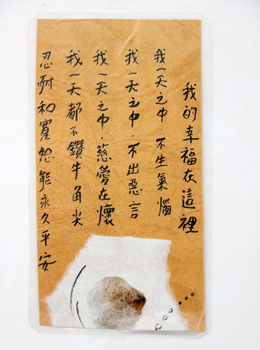 我的幸福在這裡
我一天之中，不生氣惱
我一天之中，不出惡言
我一天之中，慈愛在懷
我一天都不鑽牛角尖
忍耐和寬恕能永久平安